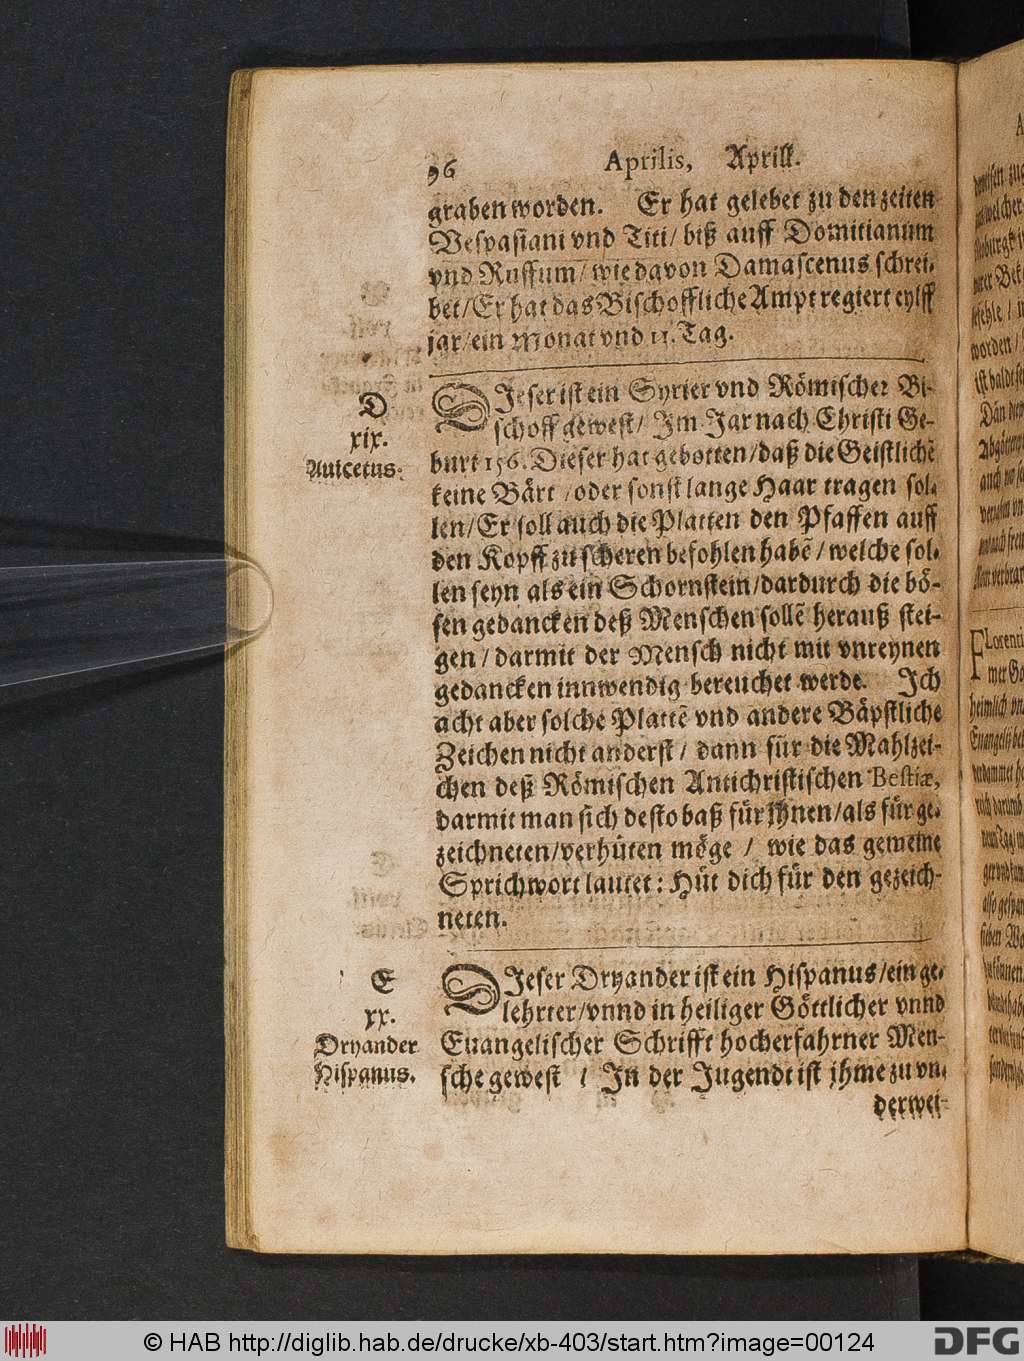 96 Aprilis, Aprill.
graben worden. Er hat gelebet zu den zeiten
Vespasiani vnd Titi / biß auff Domitianum
vnd Ruffum / wie davon Damascenus schrei-
bet / Er hat das Bischoffliche Ampt regiert eylff
jar / ein Monat vnd 11. Tag.
D
xix.
Anicetus.
DJeser ist ein Syrier vnd Römischer Bi-
schoff gewest / Im Jar nach Christi Ge-
burt 156. Dieser hat gebotten / daß die Geistlichē
keine Bärt / oder sonst lange Haar tragen sol-
len / Er soll auch die Platten den Pfaffen auff
den Kopff zu scheren befohlen habē / welche sol-
len seyn als ein Schornstein / dardurch die bö-
sen gedancken deß Menschen sollē herauß stei-
gen / darmit der Mensch nicht mit vnreynen
gedancken innwendig bereuchet werde. Ich
acht aber solche Plattē vnd andere Bäpstliche
Zeichen nicht anderst / dann für die Mahlzei-
chen deß Römischen Antichristischen Bestiæ,
darmit man sich desto baß für jhnen / als für ge-
zeichneten / verhüten möge / wie das gemeine
Sprichwort lautet : Hüt dich für den gezeich-
neten.
E
xx.
Dryander
Hispanus.
DJeser Dryander ist ein Hispanus / ein ge-
lehrter / vnnd in heiliger Göttlicher vnnd
Euangelischer Schrifft hocherfahrner Men-
sche gewest / In der Jugendt ist jhme zu vn-
derwei-
© HAB http://diglib.hab.de/drucke/xb-403/start.htm?image=00124
DFG